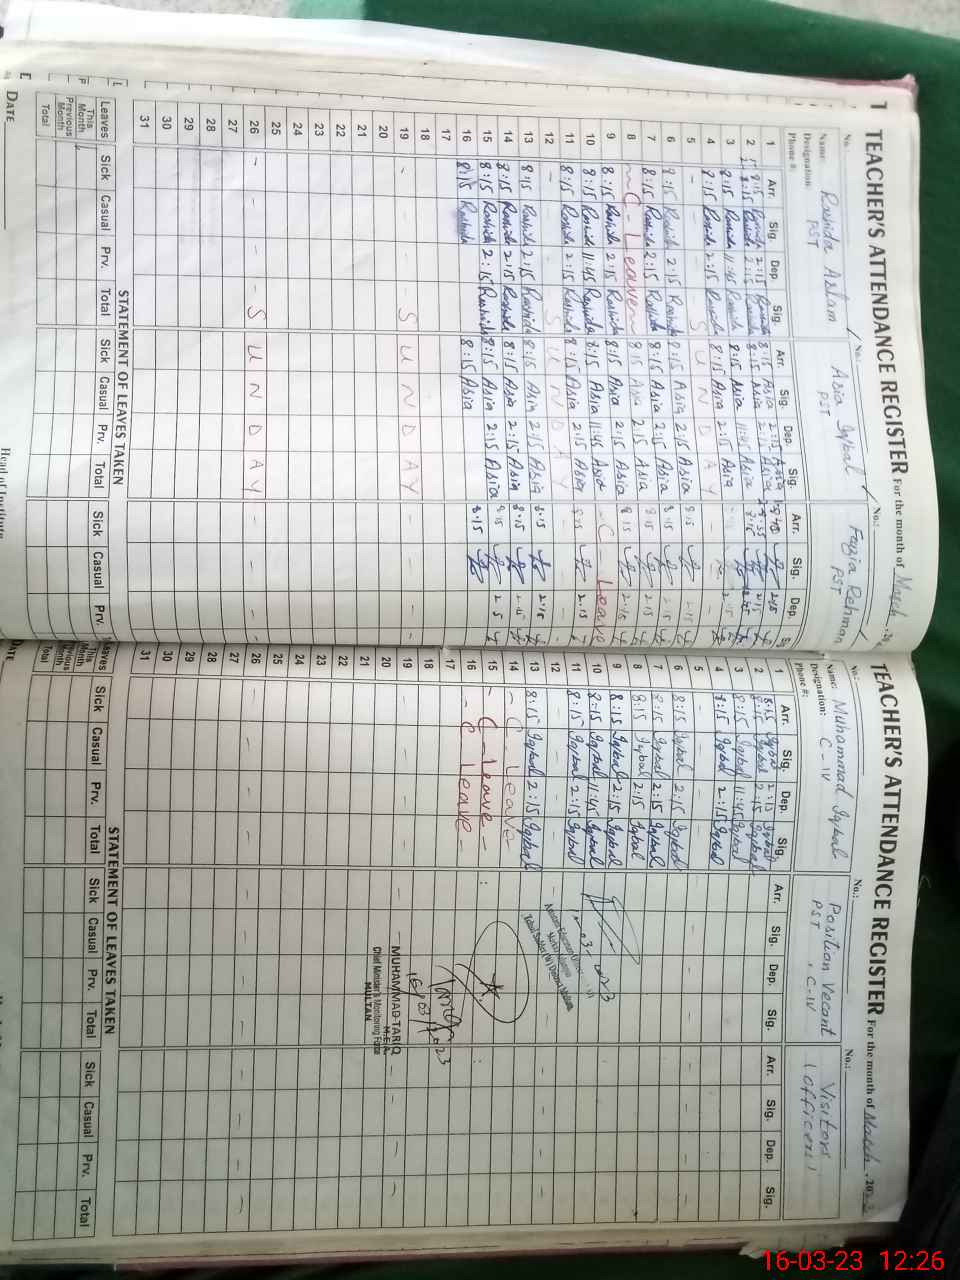 TEACHER'S ATTENDANCE REGISTER For the month of March
No.: No.: No.:
Name: Rashida Aslam Asia Iqbal Fazia Rehman
Designation: PST PST PST
Phone #:
Arr. Sig. Dep. Sig. Arr. Sig. Dep. Sig. Arr. Sig. Dep.
1 8:15 Rashida 2:15 Rashida 8:15 Asia 2:15 Asia
2 8:15 Rashida 2:15 Rashida 8:15 Asia 2:15 Asia
3 8:15 Rashida 11:45 Rashida 8:15 Asia 11:45 Asia
4 8:15 Rashida 2:15 Rashida 8:15 Asia 2:15 Asia
5 - - - S U N D A Y
6 8:15 Rashida 2:15 Rashida 8:15 Asia 2:15 Asia 8:15 2:15
7 8:15 Rashida 2:15 Rashida 8:15 Asia 2:15 Asia 8:15 2:15
8 C - Leave 8:15 Asia 2:15 Asia 8:15 2:15
9 8:15 Rashida 2:15 Rashida 8:15 Asia 2:15 Asia 8:15 2:15
10 8:15 Rashida 11:45 Rashida 8:15 Asia 11:45 Asia - C - Leave
11 8:15 Rashida 2:15 Rashida 8:15 Asia 2:15 Asia 8:15 2:15
12 - - - S U N D A Y - - -
13 8:15 Rashida 2:15 Rashida 8:15 Asia 2:15 Asia 8:15 2:15
14 8:15 Rashida 2:15 Rashida 8:15 Asia 2:15 Asia 8:15 2:15
15 8:15 Rashida 2:15 Rashida 8:15 Asia 2:15 Asia 8:15
16 8:15 Rashida 8:15 Asia 8:15
17
18
19 - - - S U N D A Y - - -
20
21
22
23
24
25
26 - - - S U N D A Y - - -
27
28
29
30
31
STATEMENT OF LEAVES TAKEN
Leaves Sick Casual Prv. Total Sick Casual Prv. Total Sick Casual Prv.
This Month
Previous Month
Total
DATE
TEACHER'S ATTENDANCE REGISTER For the month of March, 2023
No.: No.: No.:
Name: Muhammad Iqbal Position Vecant Visitors
Designation: C-IV PST, C-IV (officers)
Phone #:
Arr. Sig. Dep. Sig. Arr. Sig. Dep. Sig. Arr. Sig. Dep. Sig.
1 8:15 Iqbal 2:15 Iqbal
2 8:15 Iqbal 2:15 Iqbal
3 8:15 Iqbal 11:45 Iqbal
4 8:15 Iqbal 2:15 Iqbal
5 - - -
6 8:15 Iqbal 2:15 Iqbal
7 8:15 Iqbal 2:15 Iqbal
8 8:15 Iqbal 2:15 Iqbal
9 8:15 Iqbal 2:15 Iqbal
10 8:15 Iqbal 11:45 Iqbal
11 8:15 Iqbal 2:15 Iqbal
12 - - -
13 8:15 Iqbal 2:15 Iqbal
14 - C Leave -
15 - C - Leave -
16 - C Leave -
17
18
19 - - -
16/03/2023
MUHAMMAD TARIQ
M.E.A
Chief Minister's Monitoring Force
MULTAN
20
21
22
23
24
25
26 - - -
27
28
29
30
31
STATEMENT OF LEAVES TAKEN
Leaves Sick Casual Prv. Total Sick Casual Prv. Total Sick Casual Prv. Total
This Month
Previous Month
Total
DATE
16-03-23 12:26